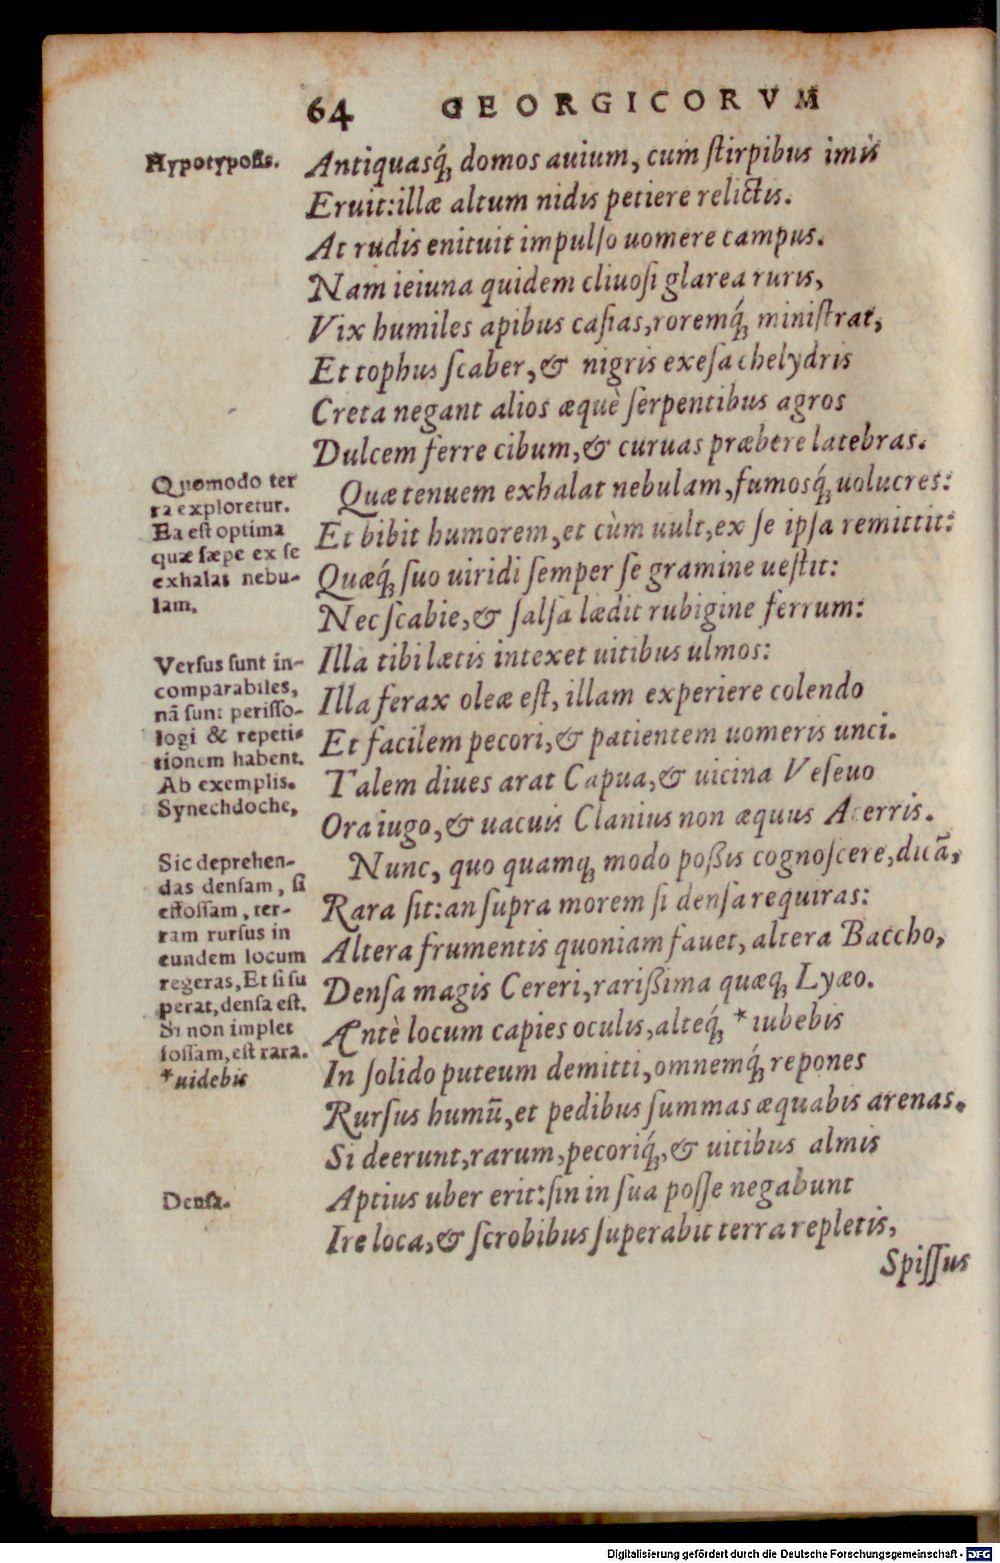 64 GEORGICORVM
Hypotyposis.
Antiquasq́; domos auium, cum ſtirpibus imis
Eruit: illæ altum nidis petiere relictis.
At rudis enituit impulſo uomere campus.
Nam ieiuna quidem cliuoſi glarea ruris,
Vix humiles apibus caſias, roremq́; miniſtrat,
Et tophus ſcaber, & nigris exeſa chelydris
Creta negant alios æquè ſerpentibus agros
Dulcem ferre cibum, & curuas præbere latebras.
Quomodo ter
ra exploretur.
Ea eſt optima
quæ ſæpe ex ſe
exhalat nebu-
lam.
Quæ tenuem exhalat nebulam, fumosq́; uolucres:
Et bibit humorem, et cùm uult, ex ſe ipſa remittit:
Quæq́; ſuo uiridi ſemper ſe gramine ueſtit:
Nec ſcabie, & ſalſa lædit rubigine ferrum:
Verſus ſunt in-
comparabiles,
nã ſunt periſſo-
logi & repeti-
tionem habent.
Ab exemplis.
Synechdoche,
Illa tibi lætis intexet uitibus ulmos:
Illa ferax oleæ eſt, illam experiere colendo
Et facilem pecori, & patientem uomeris unci.
Talem diues arat Capua, & uicina Veſeuo
Ora iugo, & uacuis Clanius non æquus Acerris.
Sic deprehen-
das denſam, ſi
effoſſam, ter-
ram rurſus in
eundem locum
regeras, Et ſi ſu
perat, denſa eſt.
Si non implet
foſſam, eſt rara.
*uidebis
Nunc, quo quamq; modo poßis cognoſcere, dicã,
Rara ſit: an ſupra morem ſi denſa requiras:
Altera frumentis quoniam fauet, altera Baccho,
Denſa magis Cereri, rarißima quæq; Lyæo.
Æntè locum capies oculis, alteq́; *iubebis
In ſolido puteum demitti, omnemq́; repones
Rurſus humũ, et pedibus ſummas æquabis arenas.
Si deerunt, rarum, pecoriq́;, & uitibus almis
Denſa.
Aptius uber erit: ſin in ſua poſſe negabunt
Ire loca, & ſcrobibus ſuperabit terra repletis,
Spiſſus
Digitalisierung gefördert durch die Deutsche Forschungsgemeinschaft - DFG